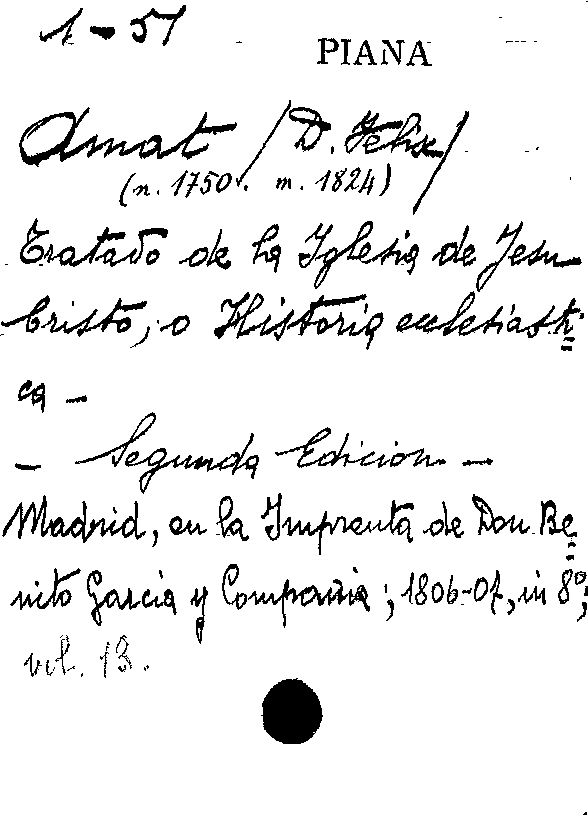 1-51
PIANA
Amat /D. Felix/
(n. 1750. m. 1824)
Tratado de la Iglesia de Jesu
Cristo, o Historia ecclesiasti=
ca –
– Segunda Edicion –
Madrid, en la Imprenta de Don Be=
nito Garcia y Compañia; 1806-07, in 8º;
vol. 13.